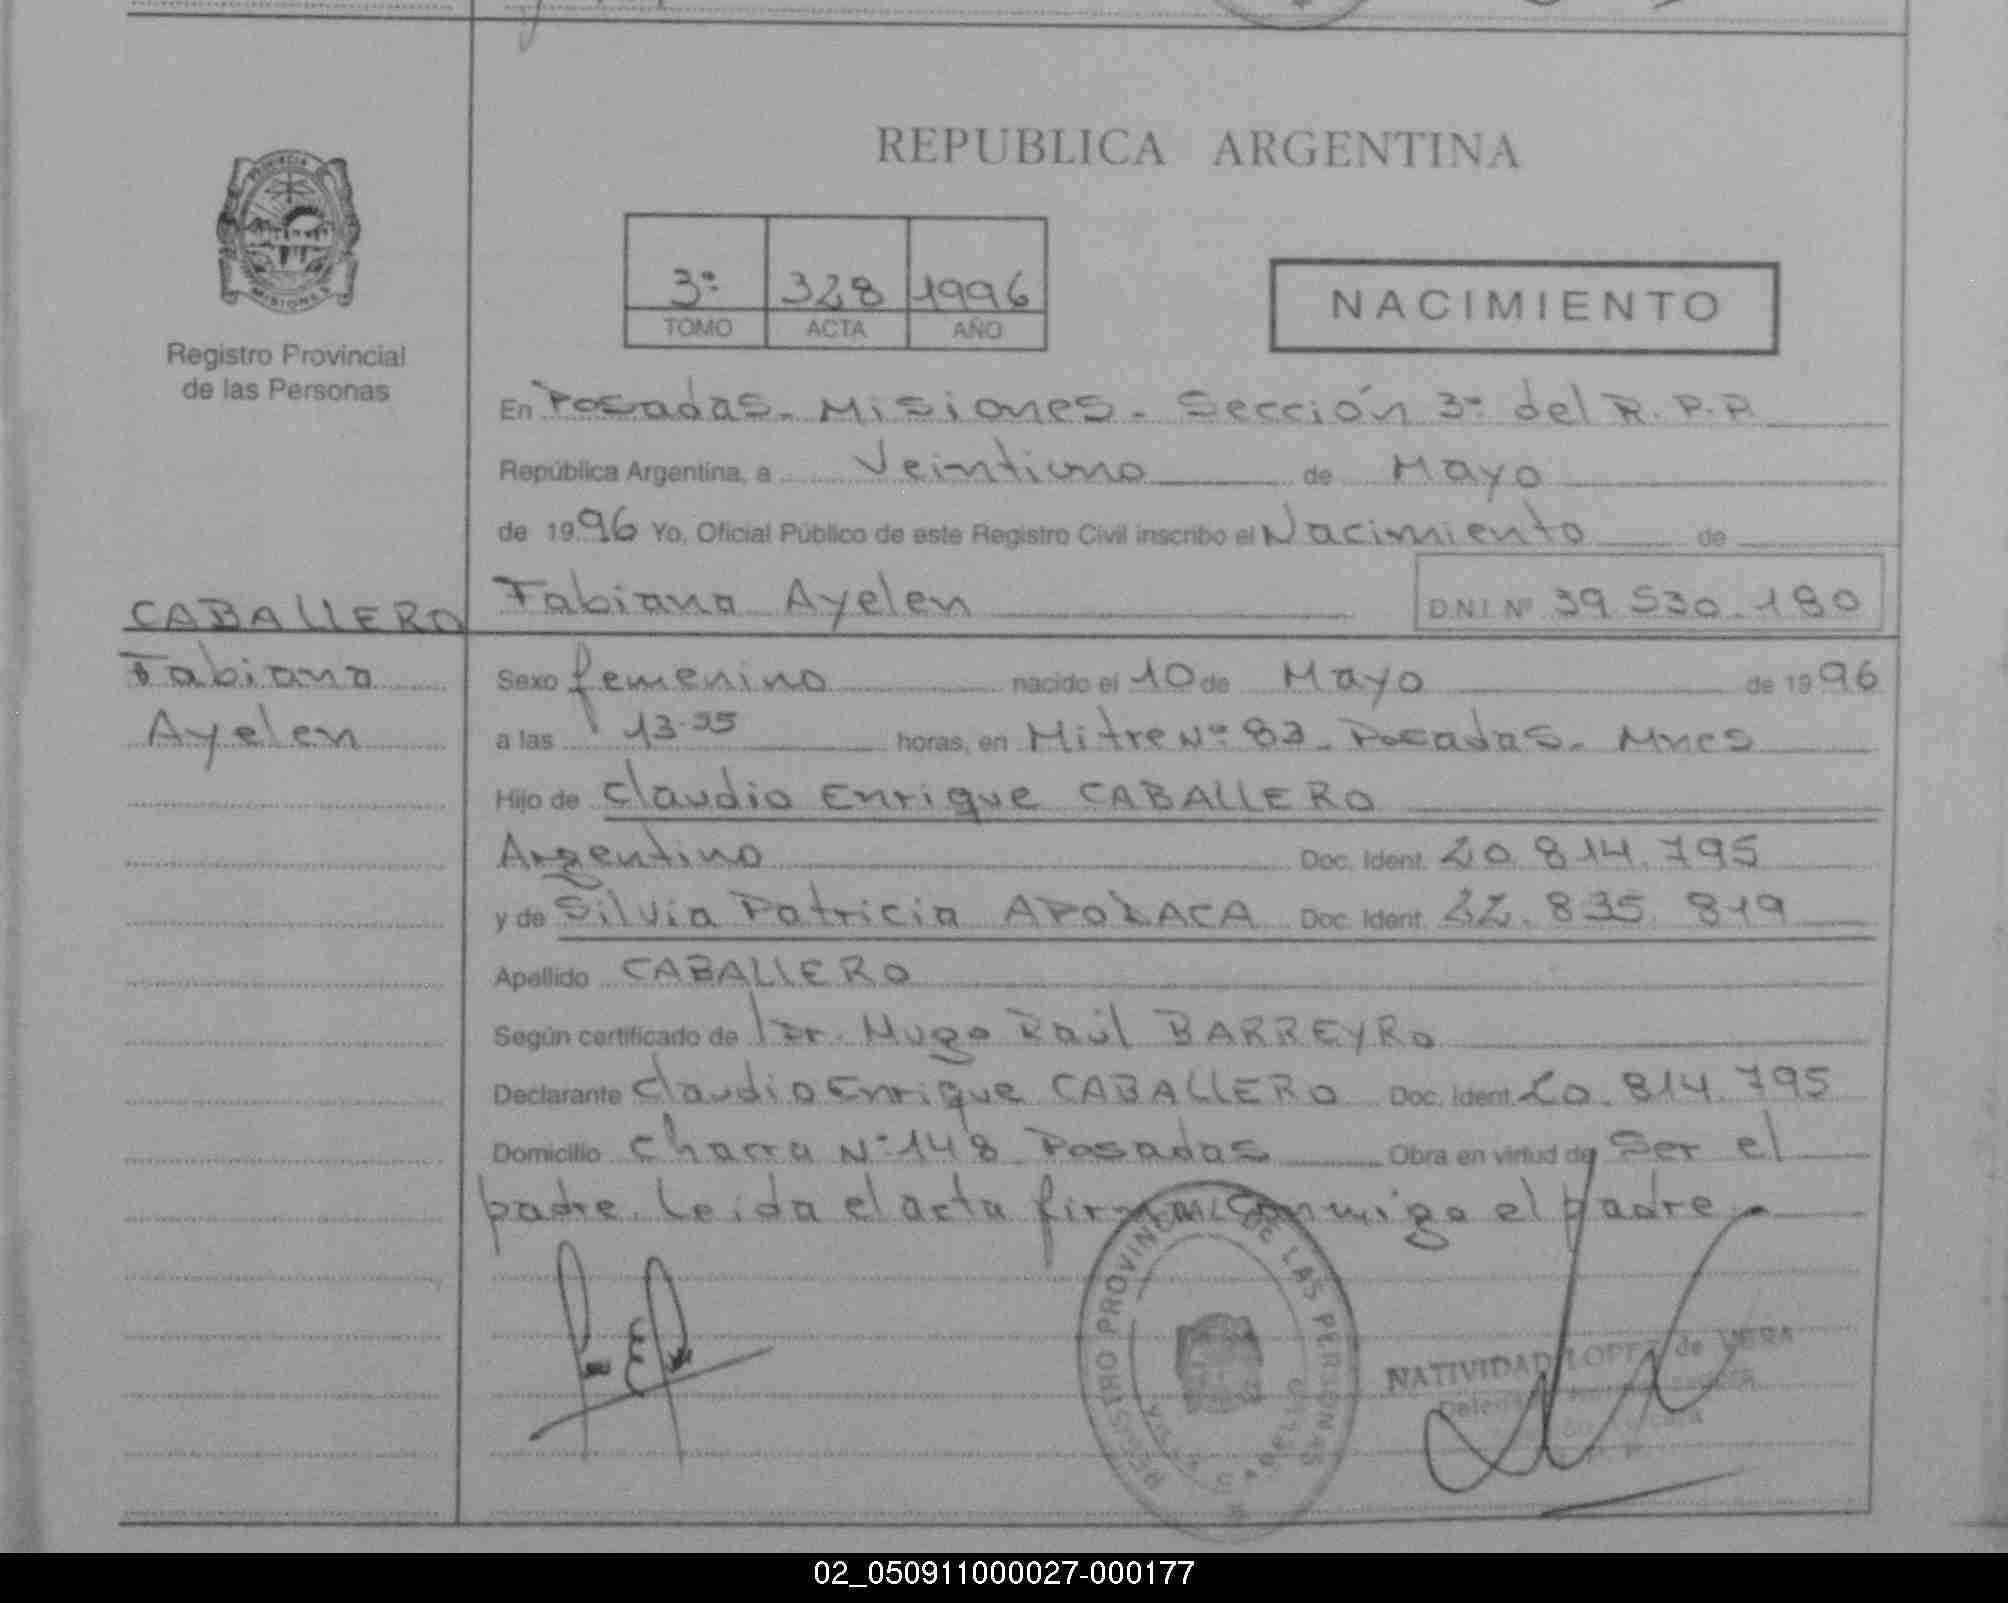 REPUBLICA ARGENTINA
PROVINCIA
MISIONES
Registro Provincial
de las Personas
3º 328 1996
TOMO ACTA AÑO
NACIMIENTO
En Posadas - Misiones - Sección 3º del R.P.P.
República Argentina, a Veintiuno de Mayo
de 1996 Yo, Oficial Público de este Registro Civil inscribo el Nacimiento de
Fabiana Ayelen D.N.I. Nº 39.530.180
CABALLERO
Fabiana
Ayelen
Sexo femenino nacido el 10 de Mayo de 1996
a las 13-35 horas, en Mitre Nº 83 - Posadas - Mnes
Hijo de Claudio Enrique CABALLERO
Argentino Doc. Ident. 20.814.795
y de Silvia Patricia APOLACA Doc. Ident. 22.835.819
Apellido CABALLERO
Según certificado de Dr. Hugo Raúl BARREYRO
Declarante Claudio Enrique CABALLERO Doc. Ident. 20.814.795
Domicilio Chacra Nº 148 Posadas Obra en virtud de Ser el
padre. Leida el acta firman conmigo el padre
REGISTRO PROVINCIAL DE LAS PERSONAS
NATIVIDAD LOPEZ de VERA
02_050911000027-000177